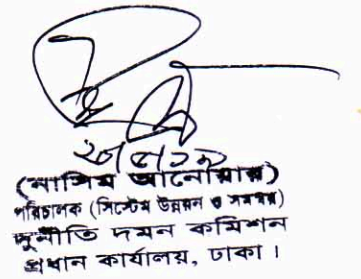 (নাসিম আনোয়ার)
পরিচালক (সিস্টেম উন্নয়ন ও সমন্বয়)
দুর্নীতি দমন কমিশন
প্রধান কার্যালয়, ঢাকা।